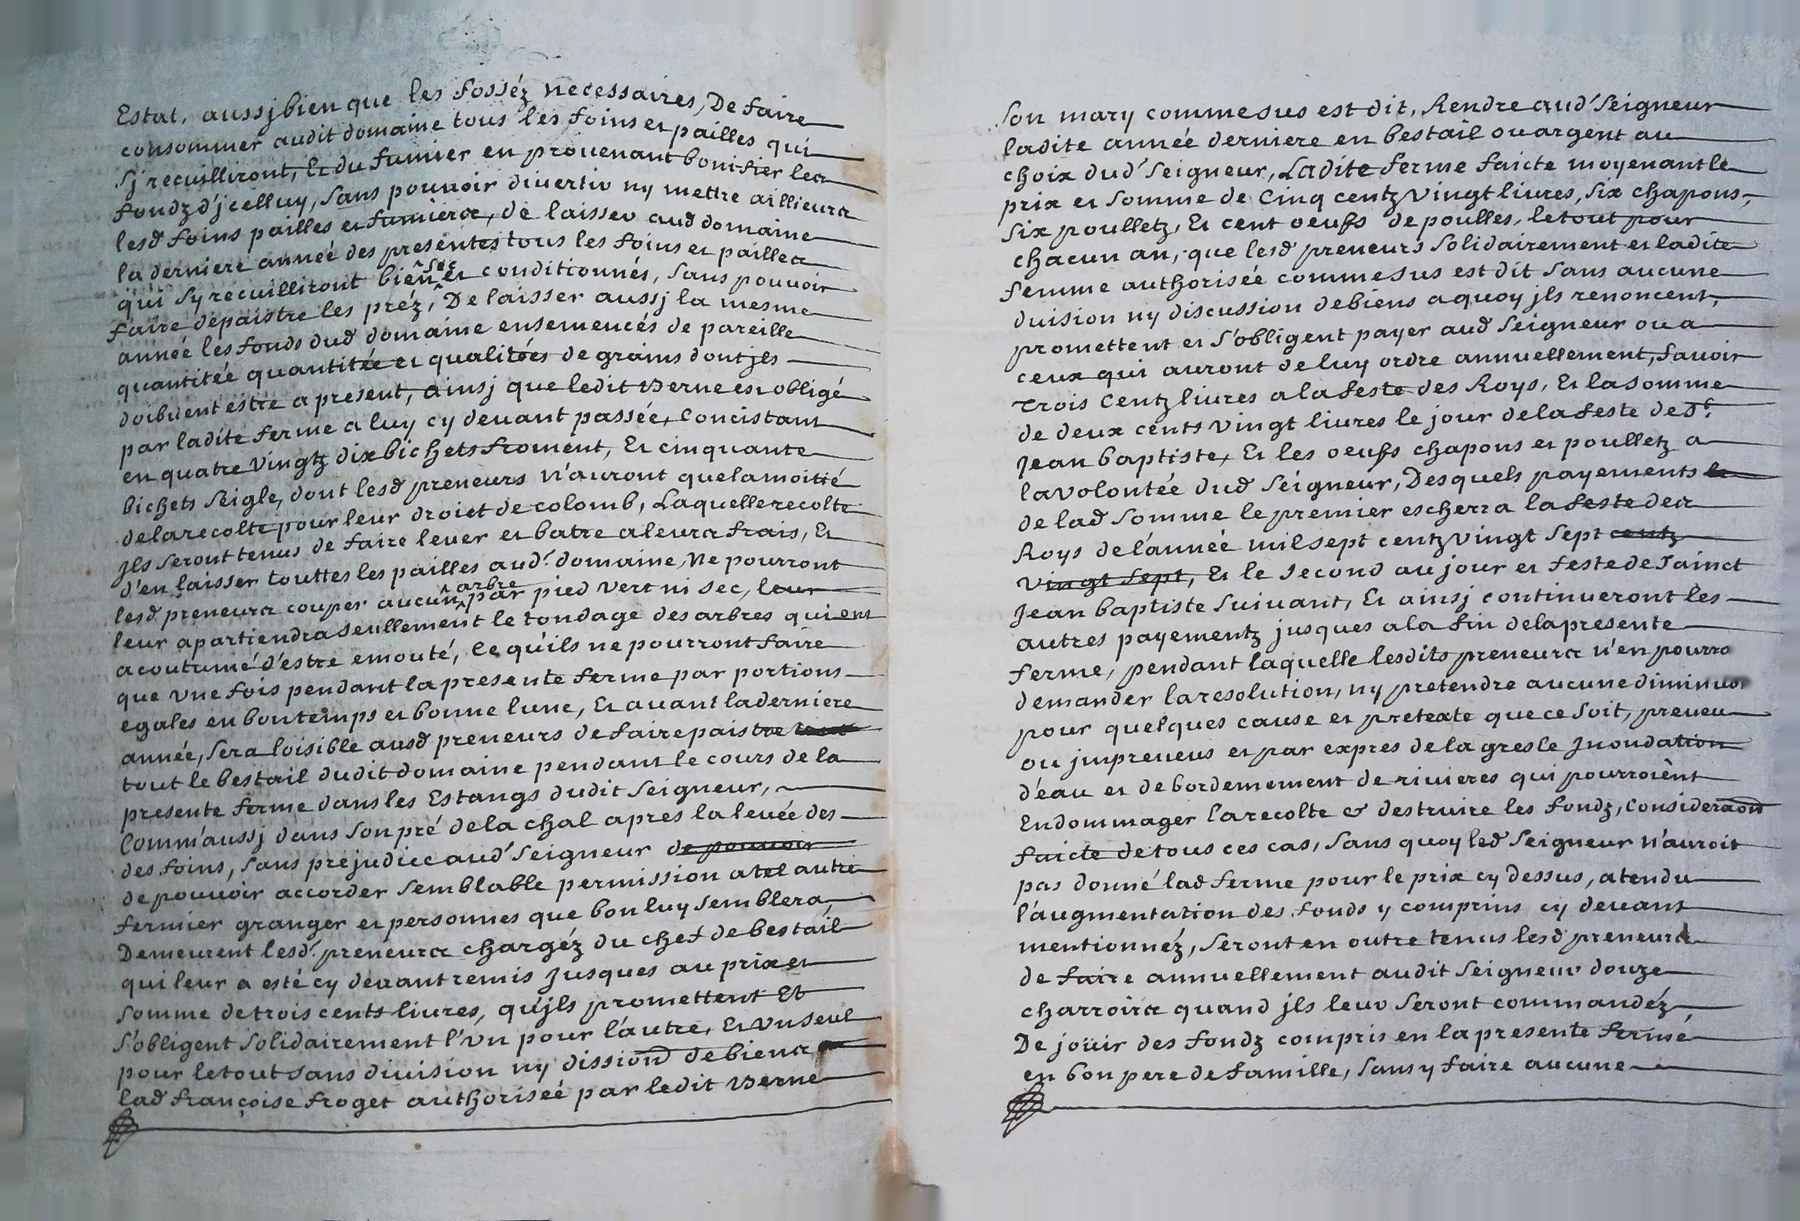 Estat, aussj bien que les fossez necessaires, De faire
consommer audit domaine tous les foins et pailles qui
sj recuilliront, Et du fumier en prouenant bonifier les
fondz d'jcelluy, sans pouvoir divertir ny mettre ailleurs
lesd foins pailles et fumiers, de laisser aud domaine
la derniere année des presentes tous les foins et pailles
qui sy recuilliront bien sec et conditionnés, sans pouvoir
faire depaistre les prez, De laisser aussj la mesme
année les fonds dud domaine ensemencés de pareille
quantitée quantitée et qualitées de grains dont jls
doibuent estre a present, ainsj que ledit Berne est obligé
par ladite ferme a luy cy devant passée, Concistant
en quatre vingtz dix bichets froment, Et cinquante
bichets seigle, dont lesd preneurs n'auront que la moitié
de la recolte pour leur droict de colomb, Laquelle recolte
jls seront tenus de faire lever et batre a leurs frais, Et
d'en laisser touttes les pailles aud. domaine, Ne pourront
lesd preneurs couper aucun arbre par pied vert ni sec, leur
leur apartiendra seullement le tondage des arbres qui ont
acoutumé d'estre emouté, Ce qu'ils ne pourront faire
que vne fois pendant la presente ferme par portions
egales en bon temps et bonne lune, Et avant la derniere
année, sera loisible ausd preneurs de faire paistre
tout le bestail dudit domaine pendant le cours de la
presente ferme dans les Estangs dudit seigneur,
Comm'aussj dans son pré de la chal apres la levée des
des foins, sans prejudice aud seigneur de pouvoir
de pouvoir accorder semblable permission a tel autre
fermier granger et personnes que bon luy semblera,
Demeurent lesd. preneurs chargéz du chef de bestail
qui leur a esté cy devant remis jusques au prix et
somme de trois cents livres, qu'jls promettent Et
s'obligent solidairement l'vn pour l'autre, Et vn seul
pour le tout sans division ny dission de biens
lad françoise froget authoriseé par ledit Berne
son mary comme sus est dit, Rendre aud seigneur
ladite année derniere en bestail ou argent au
choix dud seigneur, Ladite ferme faicte moyenant le
prix et somme de Cinq centz vingt livres, six chapons,
six poulletz, Et cent oeufs de poulles, le tout pour
chacun an, que lesd preneurs solidairement et ladite
femme authoriseé comme sus est dit sans aucune
duision ny discussion de biens a quoy jls renoncent,
promettent et s'obligent payer aud seigneur ou a
ceux qui auront de luy ordre annuellement, savoir
Trois Centz livres a la feste des Roys, Et la somme
de deux cents vingt livres le jour de la feste de St
Jean baptiste, Et les oeufs chapons et poulletz a
la volontée dud seigneur, Desquels payements
de lad somme le premier escherra la feste des
Roys de l'année mil sept centz vingt sept centz
vingt sept, Et le second au jour et feste de sainct
Jean baptiste suivant, Et ainsj continueront les
autres payementz jusques a la fin de la presente
ferme, pendant laquelle lesdits preneurs n'en pourro
demander la resolution, ny pretendre aucune diminuon
pour quelques cause et pretexte que ce soit, preveu
ou jmpreveus et par expres de la gresle Jnondation
d'eau et debordemement de rivieres qui pourroient
Endommager la recolte & destruire les fondz, Consideraon
faicte de tous ces cas, sans quoy led seigneur n'auroit
pas donné lad ferme pour le prix cy dessus, atendu
l'augmentation des fonds y comprins cy devant
mentionnéz, seront en outre tenus lesd preneurs
de faire annuellement audit seigneur douze
charrois quand jls leur seront commandéz
De joüir des fondz compris en la presente ferme
en bon pere de famille, sans y faire aucune